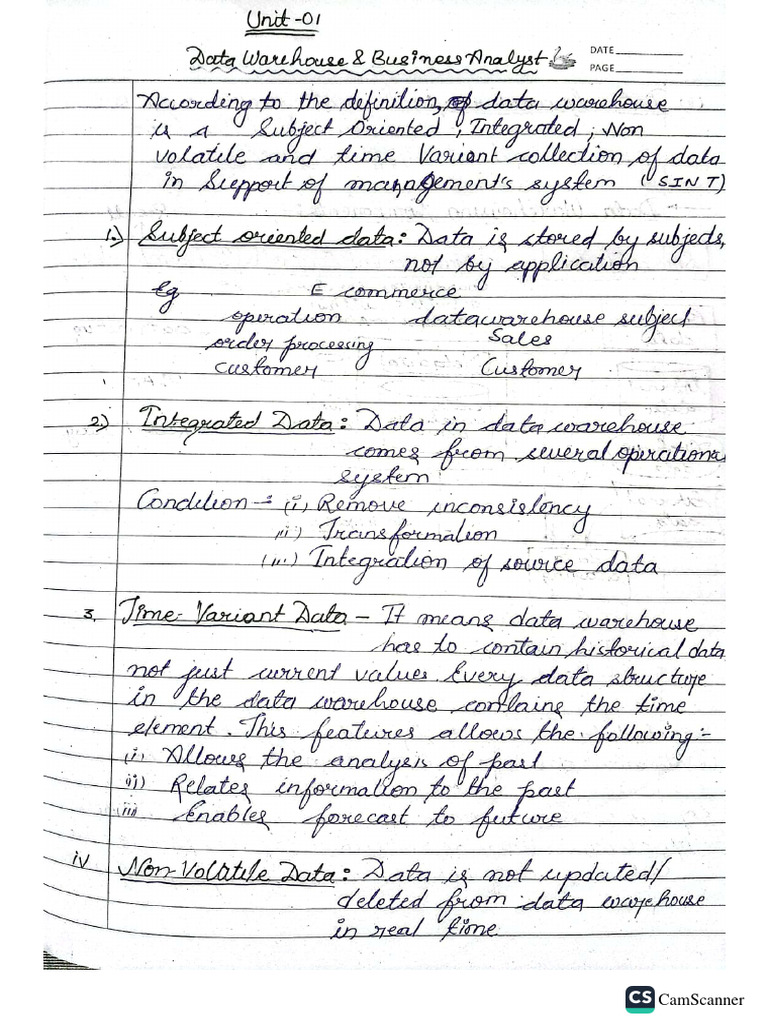 Unit -01
Data Warehouse & Business Analyst
DATE
PAGE
According to the definition, of data warehouse
is a Subject Oriented, Integrated, Non
volatile and time Variant collection of data
in Support of management's system (SINT)
1.) Subject oriented data: Data is stored by subjects,
not by application
Eg E commerce
operation datawarehouse subject
order processing Sales
customer Customer
2.) Integrated Data: Data in data warehouse
comes from several operational
system
Condition - (i) Remove inconsistency
(ii) Transformation
(iii) Integration of source data
3. Time-Variant Data - It means data warehouse
has to contain historical data
not just current values. Every data structure
in the data warehouse contains the time
element. This features allows the following:-
(i) Allows the analysis of past
ii) Relates information to the past
iii Enables forecast to future
iv Non-Volatile Data: Data is not updated/
deleted from data warehouse
in real time
CS CamScanner